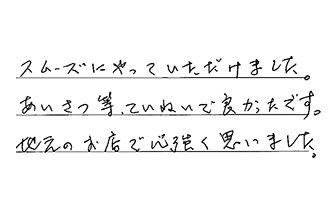 スムーズにやっていただけました。
あいさつ等、ていねいで良かったです。
地元のお店で心強く思いました。